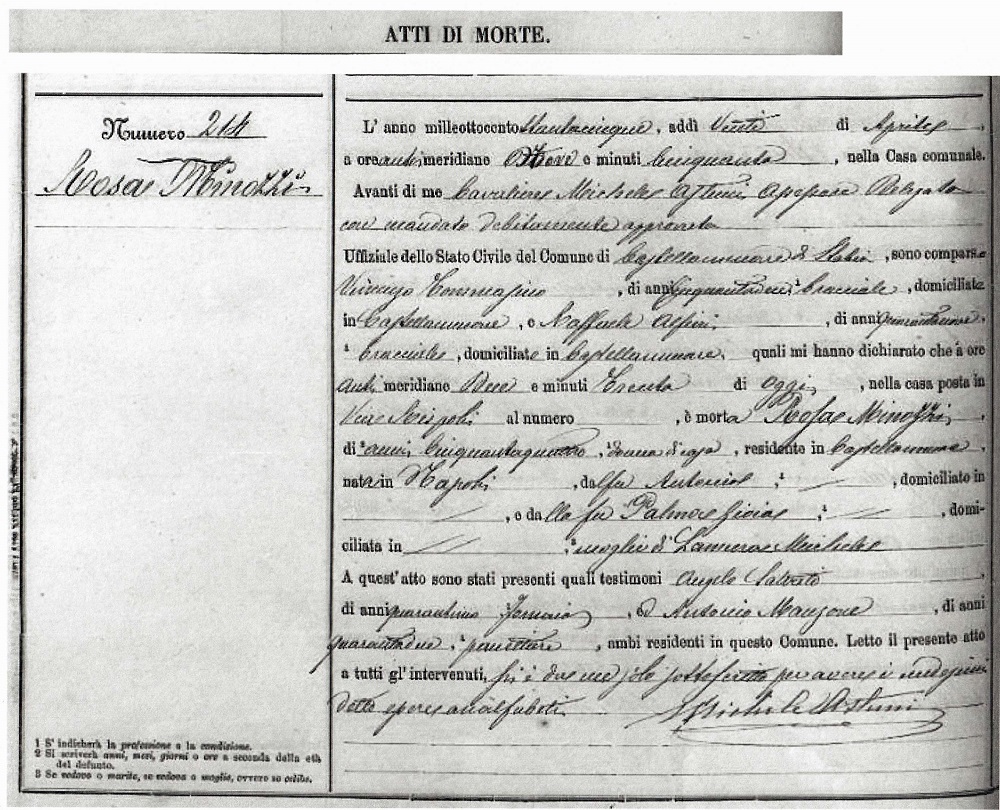 ATTI DI MORTE.
Numero 214
Rosa Minozzi
L' anno milleottocento ttantacinque, addì Venti di Aprile,
a ore anti meridiane Nove e minuti Cinquanta, nella Casa comunale.
Avanti di me Cavaliere Michele Astuni Assessore Delegato
con mandato debitamente approvato
Uffiziale dello Stato Civile del Comune di Castellammare di Stabia, sono comparsi
Vincenzo Tommasino, di anni cinquantadue, bracciale, domiciliato
in Castellammare, e Raffaele Alfieri, di anni quarantanove,
bracciale, domiciliato in Castellammare, quali mi hanno dichiarato che a ore
anti meridiane Due e minuti Trenta di oggi, nella casa posta in
Vico Rispoli al numero , è morta Rosa Minozzi,
di anni cinquantaquattro, donna di casa, residente in Castellammare,
nata in Napoli, da fu Antonio, , domiciliato in
, e da lla fu Palma Gioia, , domi-
ciliata in , moglie di Michele
A quest'atto sono stati presenti quali testimoni Angelo Salvato
di anni quarantuno fornaio, ed Antonio Manzone, di anni
quarantadue, , ambi residenti in questo Comune. Letto il presente atto
a tutti gl' intervenuti, si è da me solo sottoscritto per avere i medesimi
detto essere analfabeti.
Michele Astuni
1 S' indicherà la professione o la condizione.
2 Si scriverà anni, mesi, giorni o ore a seconda della età
del defunto.
3 Se vedovo o marito, se vedova o moglie, ovvero se celibe.